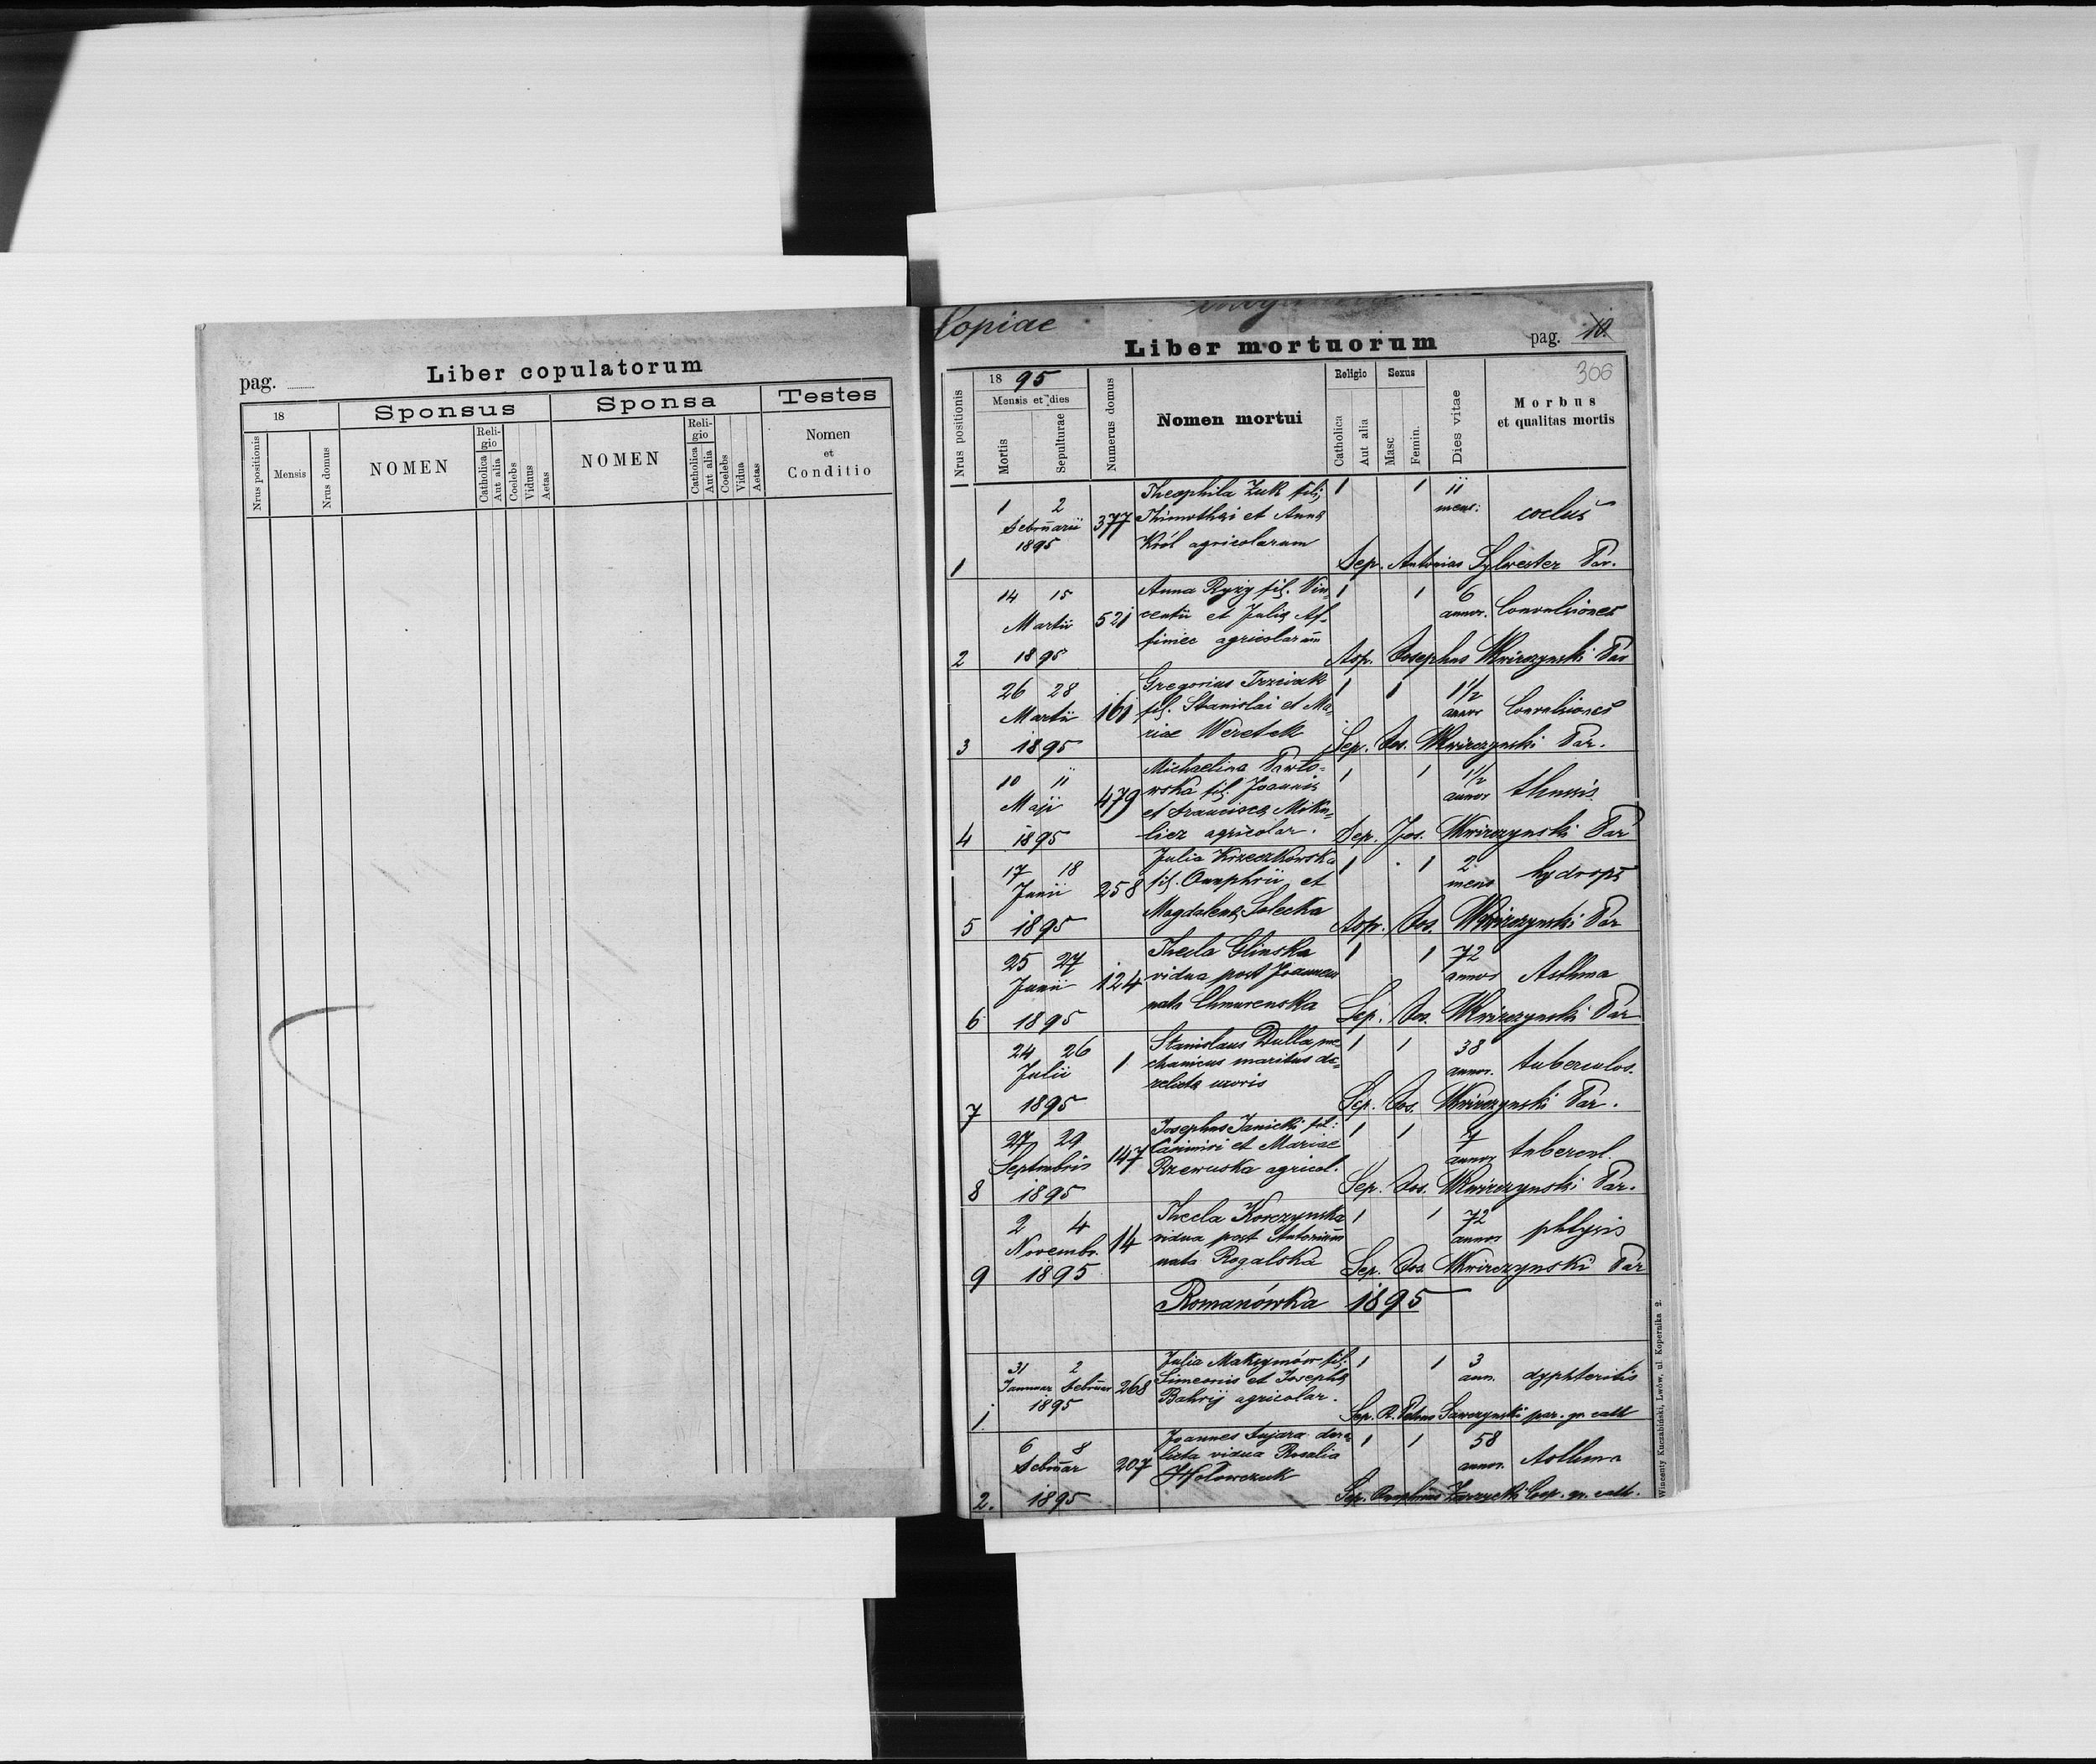 pag.
Liber copulatorum
18
Sponsus
Sponsa
Testes
Nrus positionis
Mensis
Nrus domus
NOMEN
Religio
Catholica
Aut alia
Coelebs
Viduus
Aetas
NOMEN
Religio
Catholica
Aut alia
Coelebs
Vidua
Aetas
Nomen
et
Conditio
Copiae
Liber mortuorum
pag. 10.
306
Nrus positionis
18 95
Mensis et dies
Mortis
Sepulturae
Numerus domus
Nomen mortui
Religio
Catholica
Aut alia
Sexus
Masc
Femin.
Dies vitae
Morbus
et qualitas mortis
1 2 Theophila Zuk filj 1 1 11
Februarii 377 Thimothei et Annę mens: coclus
1895 Król agricolarum
1 Sep. Antonius Sylwester Par.
14 15 Anna Ryzy fil. Vin- 1 1 6
Martii 521 centii et Julię annor. Convulsiones
agricolarum
2 1895 Josephus Kwirczynski Par
26 28 Gregorius Trzeciak 1 1 1 1/2
Martii 161 fil. Stanislai et Ma- annor Convulsiones
riae Weretek
3 1895 Sep. Jos. Kwirczynski Par.
10 11 Michaelina Pawło- 1 1 1 1/2
Maji 479 wska fil. Joannis annor thussis
et Franciscę
4 1895 agricolar. Sep. Jos. Kwirczynski Par
17 18 Julia Krzeczkowska 1 1 2
Junii 258 fil. Onuphrii et mens hydrops
Magdalenę Solecka
5 1895 Jos. Kwirczynski Par
25 27 Thecla Glinska 1 1 72
Junii 124 vidua post Joannem annor Asthma
nata Chmurenska
6 1895 Sep. Jos. Kwirczynski Par
24 26 Stanislaus Dulla, me 1 1 38
Julii 1 chanicus maritus de- annor. tuberculos.
relictę uxoris
7 1895 Sep. Jos. Kwirczynski Par.
27 29 Josephus Janicki fil: 1 1
Septembris 147 Casimiri et Mariae annor tubercul.
Rzewuska agricol.
8 1895 Sep. Jos. Kwirczynski Par.
2 4 Thecla Korczynska 1 1 72
Novembr. 14 vidua post Antonium annor phtysis
nata Rogalska
9 1895 Sep. Jos. Kwirczynski Par
Romanówka 1895
31 2 Julia Maksymów fil. 1 1 3
Januar Februar 268 Simeonis et Josephę ann. dyphteritis
1895 Bahrij agricolar.
1. Sep. R. Petrus Sawczynski par. gr. cath
6 8 Joannes Fujara dere- 1 1 58
Februar 207 licta vidua Rosalia annor. Asthma
Hołowczuk
2. 1895 Sep. Onuphrius Zarzycki Coop. gr. cath.
Wincenty Kuczabiński, Lwów, ul. Kopernika 2.